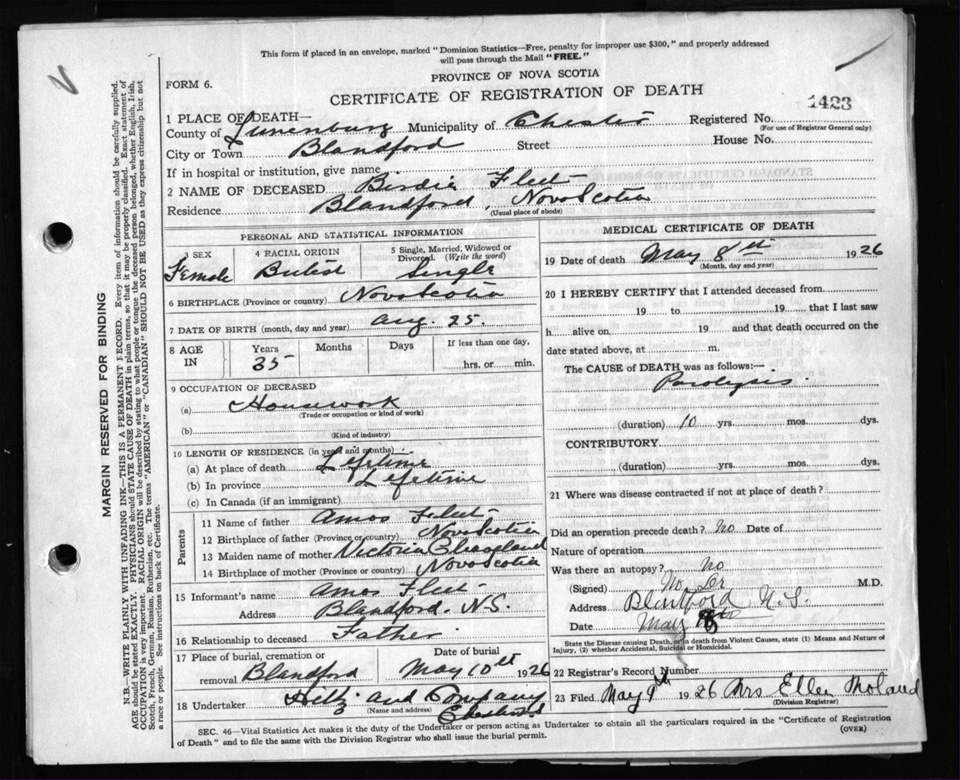 This form if placed in an envelope, marked "Dominion Statistics—Free, penalty for improper use $300," and properly addressed
will pass through the Mail "FREE."
FORM 6.
PROVINCE OF NOVA SCOTIA
CERTIFICATE OF REGISTRATION OF DEATH
1423
1 PLACE OF DEATH—
County of Lunenburg Municipality of Chester Registered No.
(For use of Registrar General only)
City or Town Blandford Street House No.
If in hospital or institution, give name
2 NAME OF DECEASED Birdie Fleet
Residence Blandford, Nova Scotia
(Usual place of abode)
PERSONAL AND STATISTICAL INFORMATION
3 SEX Female
4 RACIAL ORIGIN British
5 Single, Married, Widowed or
Divorced. (Write the word)
Single
6 BIRTHPLACE (Province or country) Nova Scotia
7 DATE OF BIRTH (month, day and year) Aug. 25.
8 AGE IN Years Months Days If less than one day,
35 hrs. or min.
9 OCCUPATION OF DECEASED
(a) Housework
(Trade or occupation or kind of work)
(b)
(Kind of industry)
10 LENGTH OF RESIDENCE (in years and months)
(a) At place of death Lifetime
(b) In province Lifetime
(c) In Canada (if an immigrant)
Parents
11 Name of father Amos Fleet
12 Birthplace of father (Province or country) Nova Scotia
13 Maiden name of mother Victoria
14 Birthplace of mother (Province or country) Nova Scotia
15 Informant's name Amos Fleet
Address Blandford. N.S.
16 Relationship to deceased Father
17 Place of burial, cremation or removal Blandford
Date of burial May 10th 1926
18 Undertaker and Company
(Name and address) Chester
MEDICAL CERTIFICATE OF DEATH
19 Date of death May 8th 1926
(Month, day and year)
20 I HEREBY CERTIFY that I attended deceased from
19 to 19 that I last saw
h alive on 19 and that death occurred on the
date stated above, at m.
The CAUSE OF DEATH was as follows:—
Paralysis.
(duration) 10 yrs. mos. dys.
CONTRIBUTORY
(duration) yrs. mos. dys.
21 Where was disease contracted if not at place of death?
Did an operation precede death? No Date of
Nature of operation
Was there an autopsy? No
(Signed) No Dr M.D.
Address Blandford N.S.
Date May
State the Disease causing Death, or in death from Violent Causes, state (1) Means and Nature of
Injury, (2) whether Accidental, Suicidal or Homicidal.
22 Registrar's Record Number
23 Filed May 9th 1926 Mrs Ellen
(Division Registrar)
SEC. 46—Vital Statistics Act makes it the duty of the Undertaker or person acting as Undertaker to obtain all the particulars required in the "Certificate of Registration
of Death" and to file the same with the Division Registrar who shall issue the burial permit.
(OVER)
MARGIN RESERVED FOR BINDING
N.B.—WRITE PLAINLY WITH UNFADING INK—THIS IS A PERMANENT RECORD. Every item of information should be carefully supplied.
AGE should be stated EXACTLY. PHYSICIANS should STATE CAUSE OF DEATH in plain terms, so that it may be properly classified. Exact statement of
OCCUPATION is very important. RACIAL ORIGIN will be described by stating to what people or tongue the deceased person belonged, whether English, Irish,
Scotch, French, German, Russian, Ruthenian, etc. The terms "AMERICAN" or "CANADIAN" SHOULD NOT BE USED as they express citizenship but not
a race or people. See instructions on back of Certificate.